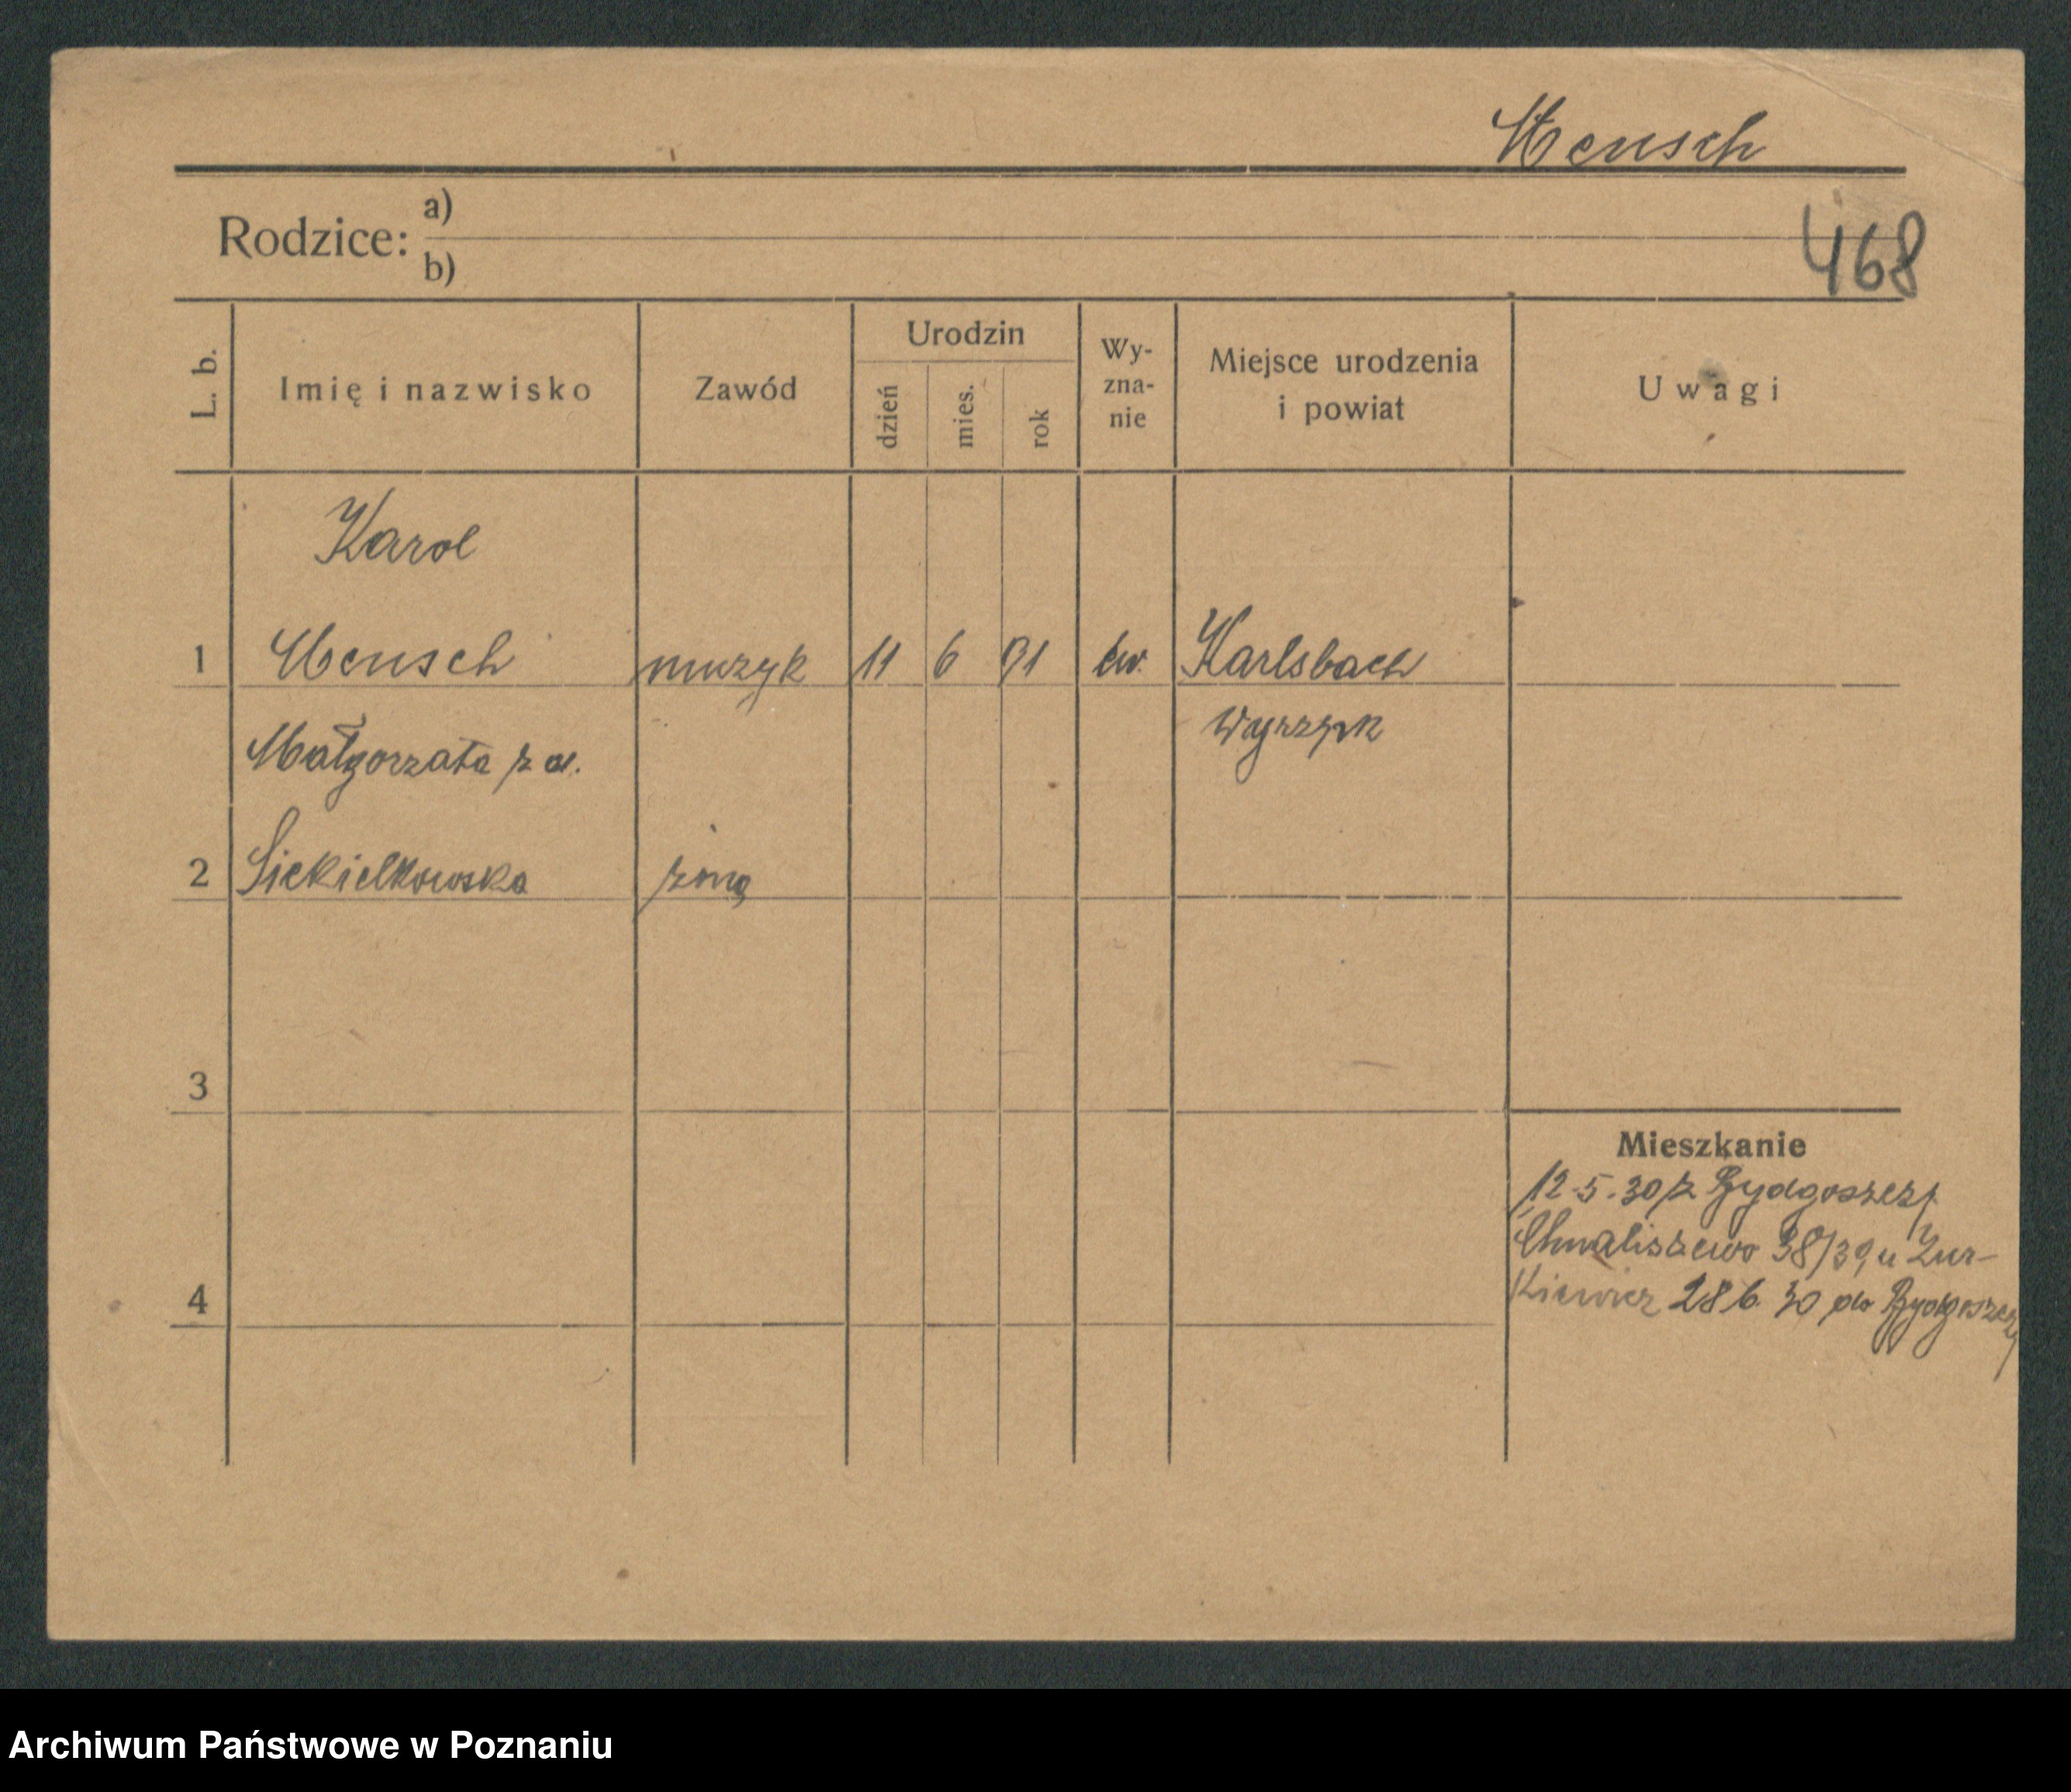 Mensch
Rodzice: a)
b)
468
L. b.
Imię i nazwisko
Zawód
Urodzin
dzień
mies.
rok
Wy-
zna-
nie
Miejsce urodzenia
i powiat
Uwagi
Karol
1 Mensch muzyk 11 6 91 ew. Karlsbach
Wyrzysk
Małgorzata z d.
2 Siekielkowska żona
3
Mieszkanie
12.5.30 z Bydgoszczy
Chwaliszewo 38/39 u Żur-
4 kiewicz 28 6. 30 do Bydgoszczy
Archiwum Państwowe w Poznaniu